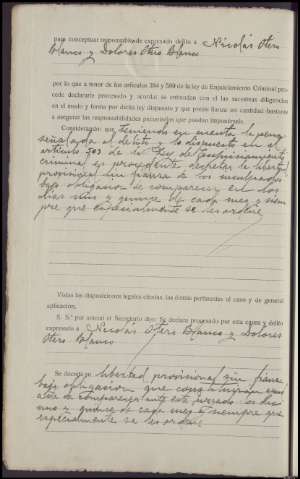 para conceptuar responsable de expresado delito a Nicolás Otero
Blanco y Dolores Otero Blanco
por lo que a tenor de los artículos 384 y 589 de la ley de Enjuiciamiento Criminal pro-
cede declararle procesado y acordar se entiendan con él las sucesivas diligencias
en el modo y forma por dicha ley dispuesto y que preste fianza en cantidad bastante
a asegurar las responsabilidades pecuniarias que puedan imponérsele.
Considerando que teniendo en cuenta la pena
señalada al delito y lo dispuesto en el
artículo 529 de la Ley de Enjuiciamiento
criminal es procedente decretar la libertad
provisional sin fianza de los nombrados
bajo obligación de comparecer en los
días uno y quince de cada mes y siem
pre que especialmente se les ordene
Vistas las disposiciones legales citadas, las demás pertinentes al caso y de general
aplicación;
S. S.ª por ante mí el Secretario dijo: Se declara procesado por esta causa y delito
expresado a Nicolás Otero Blanco y Dolores
Otero Blanco
Se decreta la libertad provisional sin fianza
bajo obligación que
de comparecer ante este juzgado los días
uno y quince de cada mes y siempre que
especialmente se les ordene